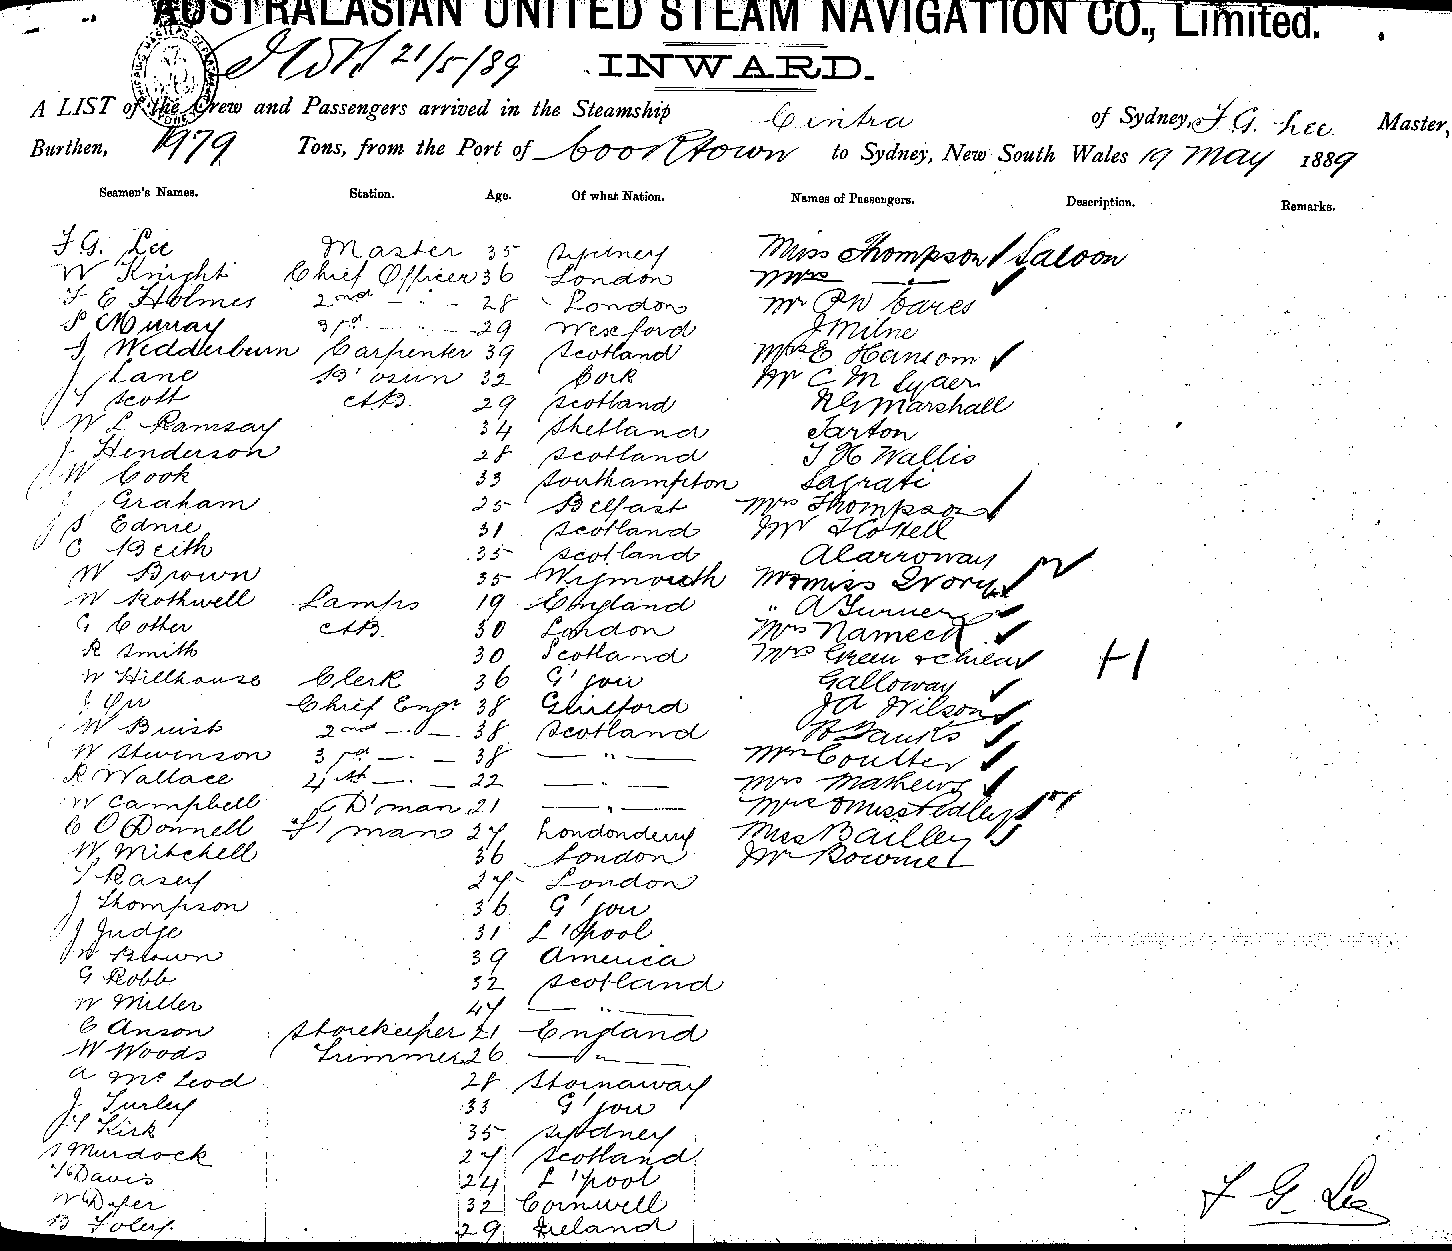 AUSTRALASIAN UNITED STEAM NAVIGATION CO., Limited.
21/5/89 INWARD.
A LIST of the Crew and Passengers arrived in the Steamship Cintra of Sydney, F G. Lee Master,
Burthen, 1979 Tons, from the Port of Cooktown to Sydney, New South Wales 19 May 1889
Seamen's Names. Station. Age. Of what Nation. Names of Passengers. Description. Remarks.
F G. Lee Master 35 Sydney Miss Thompson Saloon
W Knight Chief Officer 36 London Mrs — " —
F E Holmes 2nd — " — 28 London Mr Cares
P Murray 3rd — " — 29 Wexford J Milne
J Wedderburn Carpenter 39 Scotland Mrs E Hansom
J Lane B'osun 32 Cork Mr C M Syder
J T Scott AB. 29 Scotland Marshall
W L Ramsay 34 Shetland Tarton
J Henderson 28 Scotland Wallis
W Cook 33 Southampton Lagrati
J Graham 25 Belfast Mrs Thompson
S Ednie 31 Scotland Mr
C Beith 35 Scotland
W Brown 35 Wymouth Miss Ivory
W Rothwell Lamps 19 England " A Turner
G Cotter AB. 30 London Mrs Nameck
R Smith 30 Scotland Mrs Green & child
W Hillhouse Clerk 36 G'gow Galloway
J Chief Engr 38 Guilford J A Wilson
W Buist 2nd — " — 38 Scotland Banks
W Stevenson 3rd — " — 38 — " — Coulter
R Wallace 4th — " — 22 — " — Mrs Mathews
W Campbell D'man 21 — " — Mrs & Miss
C O'Donnell F'man 27 Londonderry Miss Bailley
W Mitchell 36 London Mr
T Rasey 27 London
J Thompson 36 G'gow
J Judge 31 L'pool
W Brown 39 America
G Robb 32 Scotland
W Miller 47 — " —
C Anson Storekeeper 21 England
W Woods Trimmer 26 — " —
A McLeod 28 Stornaway
J Turley 33 G'gow
J T Kirk 35 Sydney
S Murdock 27 Scotland
Davis 24 L'pool
W 32 Cornwell
B Foley 29 Ireland
F G. Lee